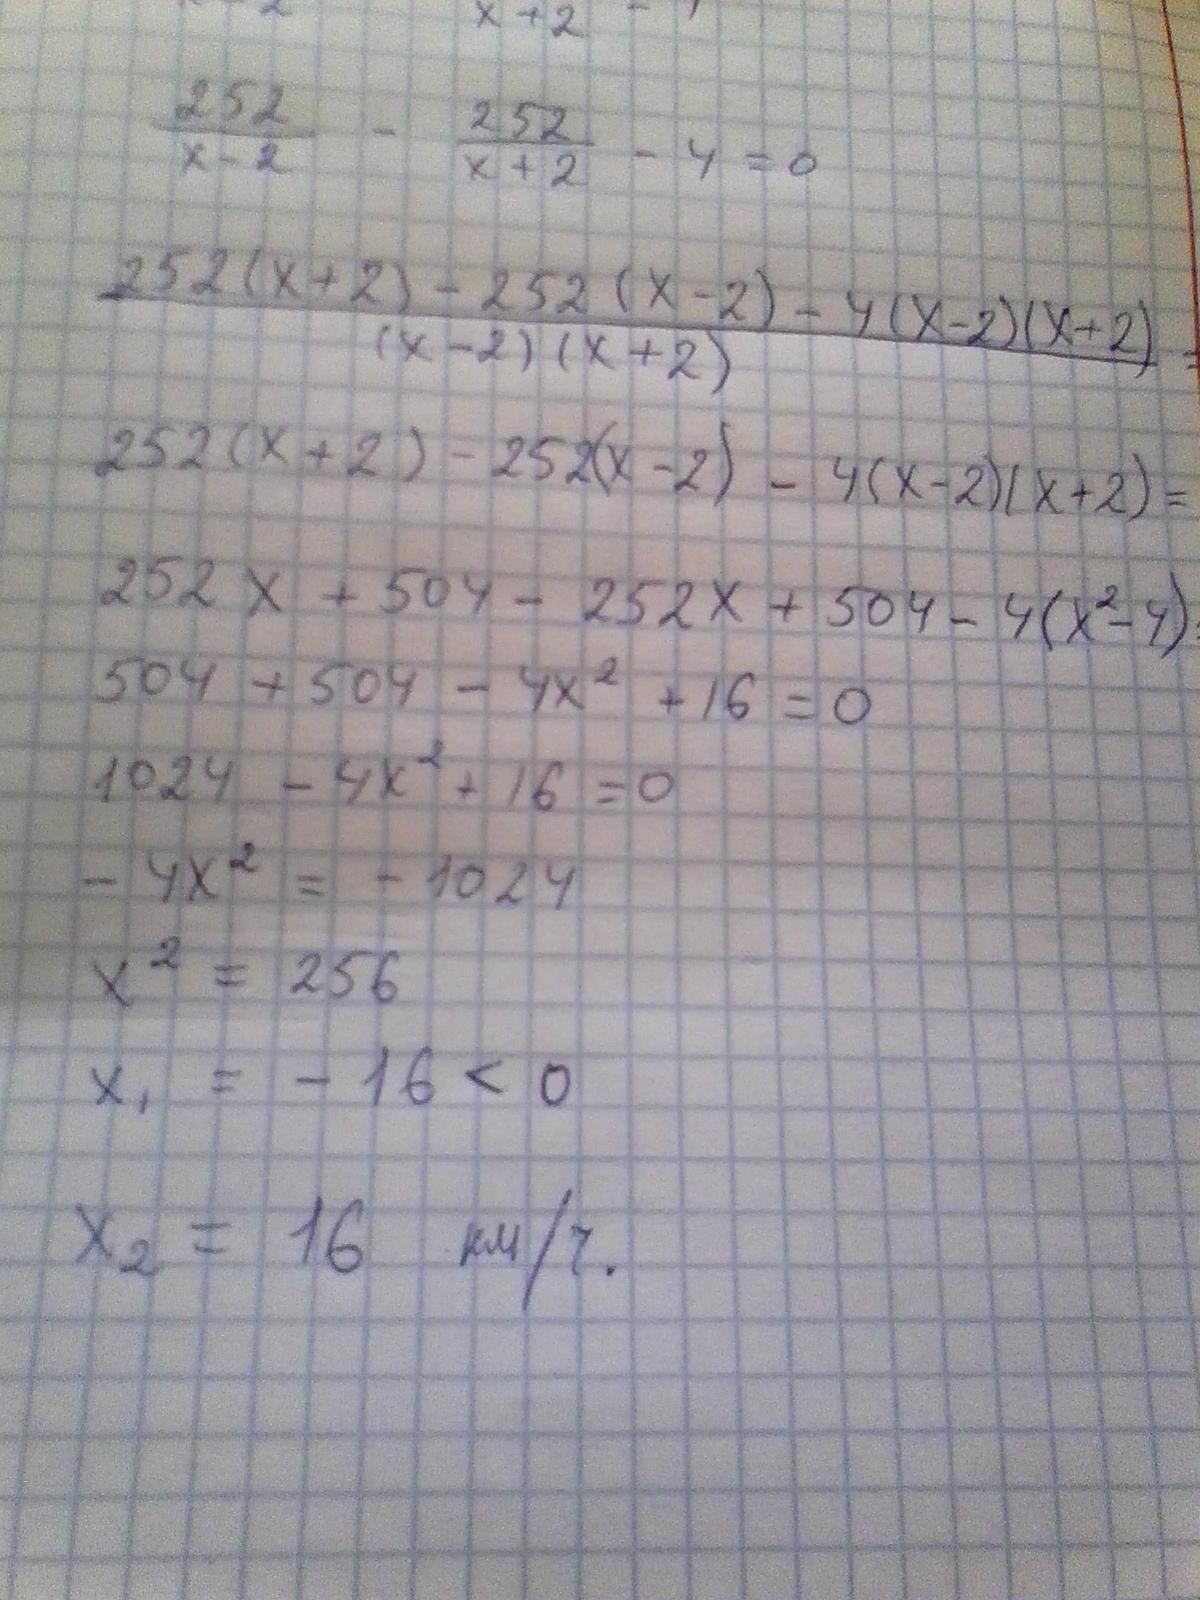 x+2
252/(x-2) - 252/(x+2) - 4 = 0
(252(x+2) - 252(x-2) - 4(x-2)(x+2))/((x-2)(x+2)) =
252(x+2) - 252(x-2) - 4(x-2)(x+2) =
252x + 504 - 252x + 504 - 4(x²-4)
504 + 504 - 4x² + 16 = 0
1024 - 4x² + 16 = 0
- 4x² = - 1024
x² = 256
x₁ = - 16 < 0
x₂ = 16 км/ч.